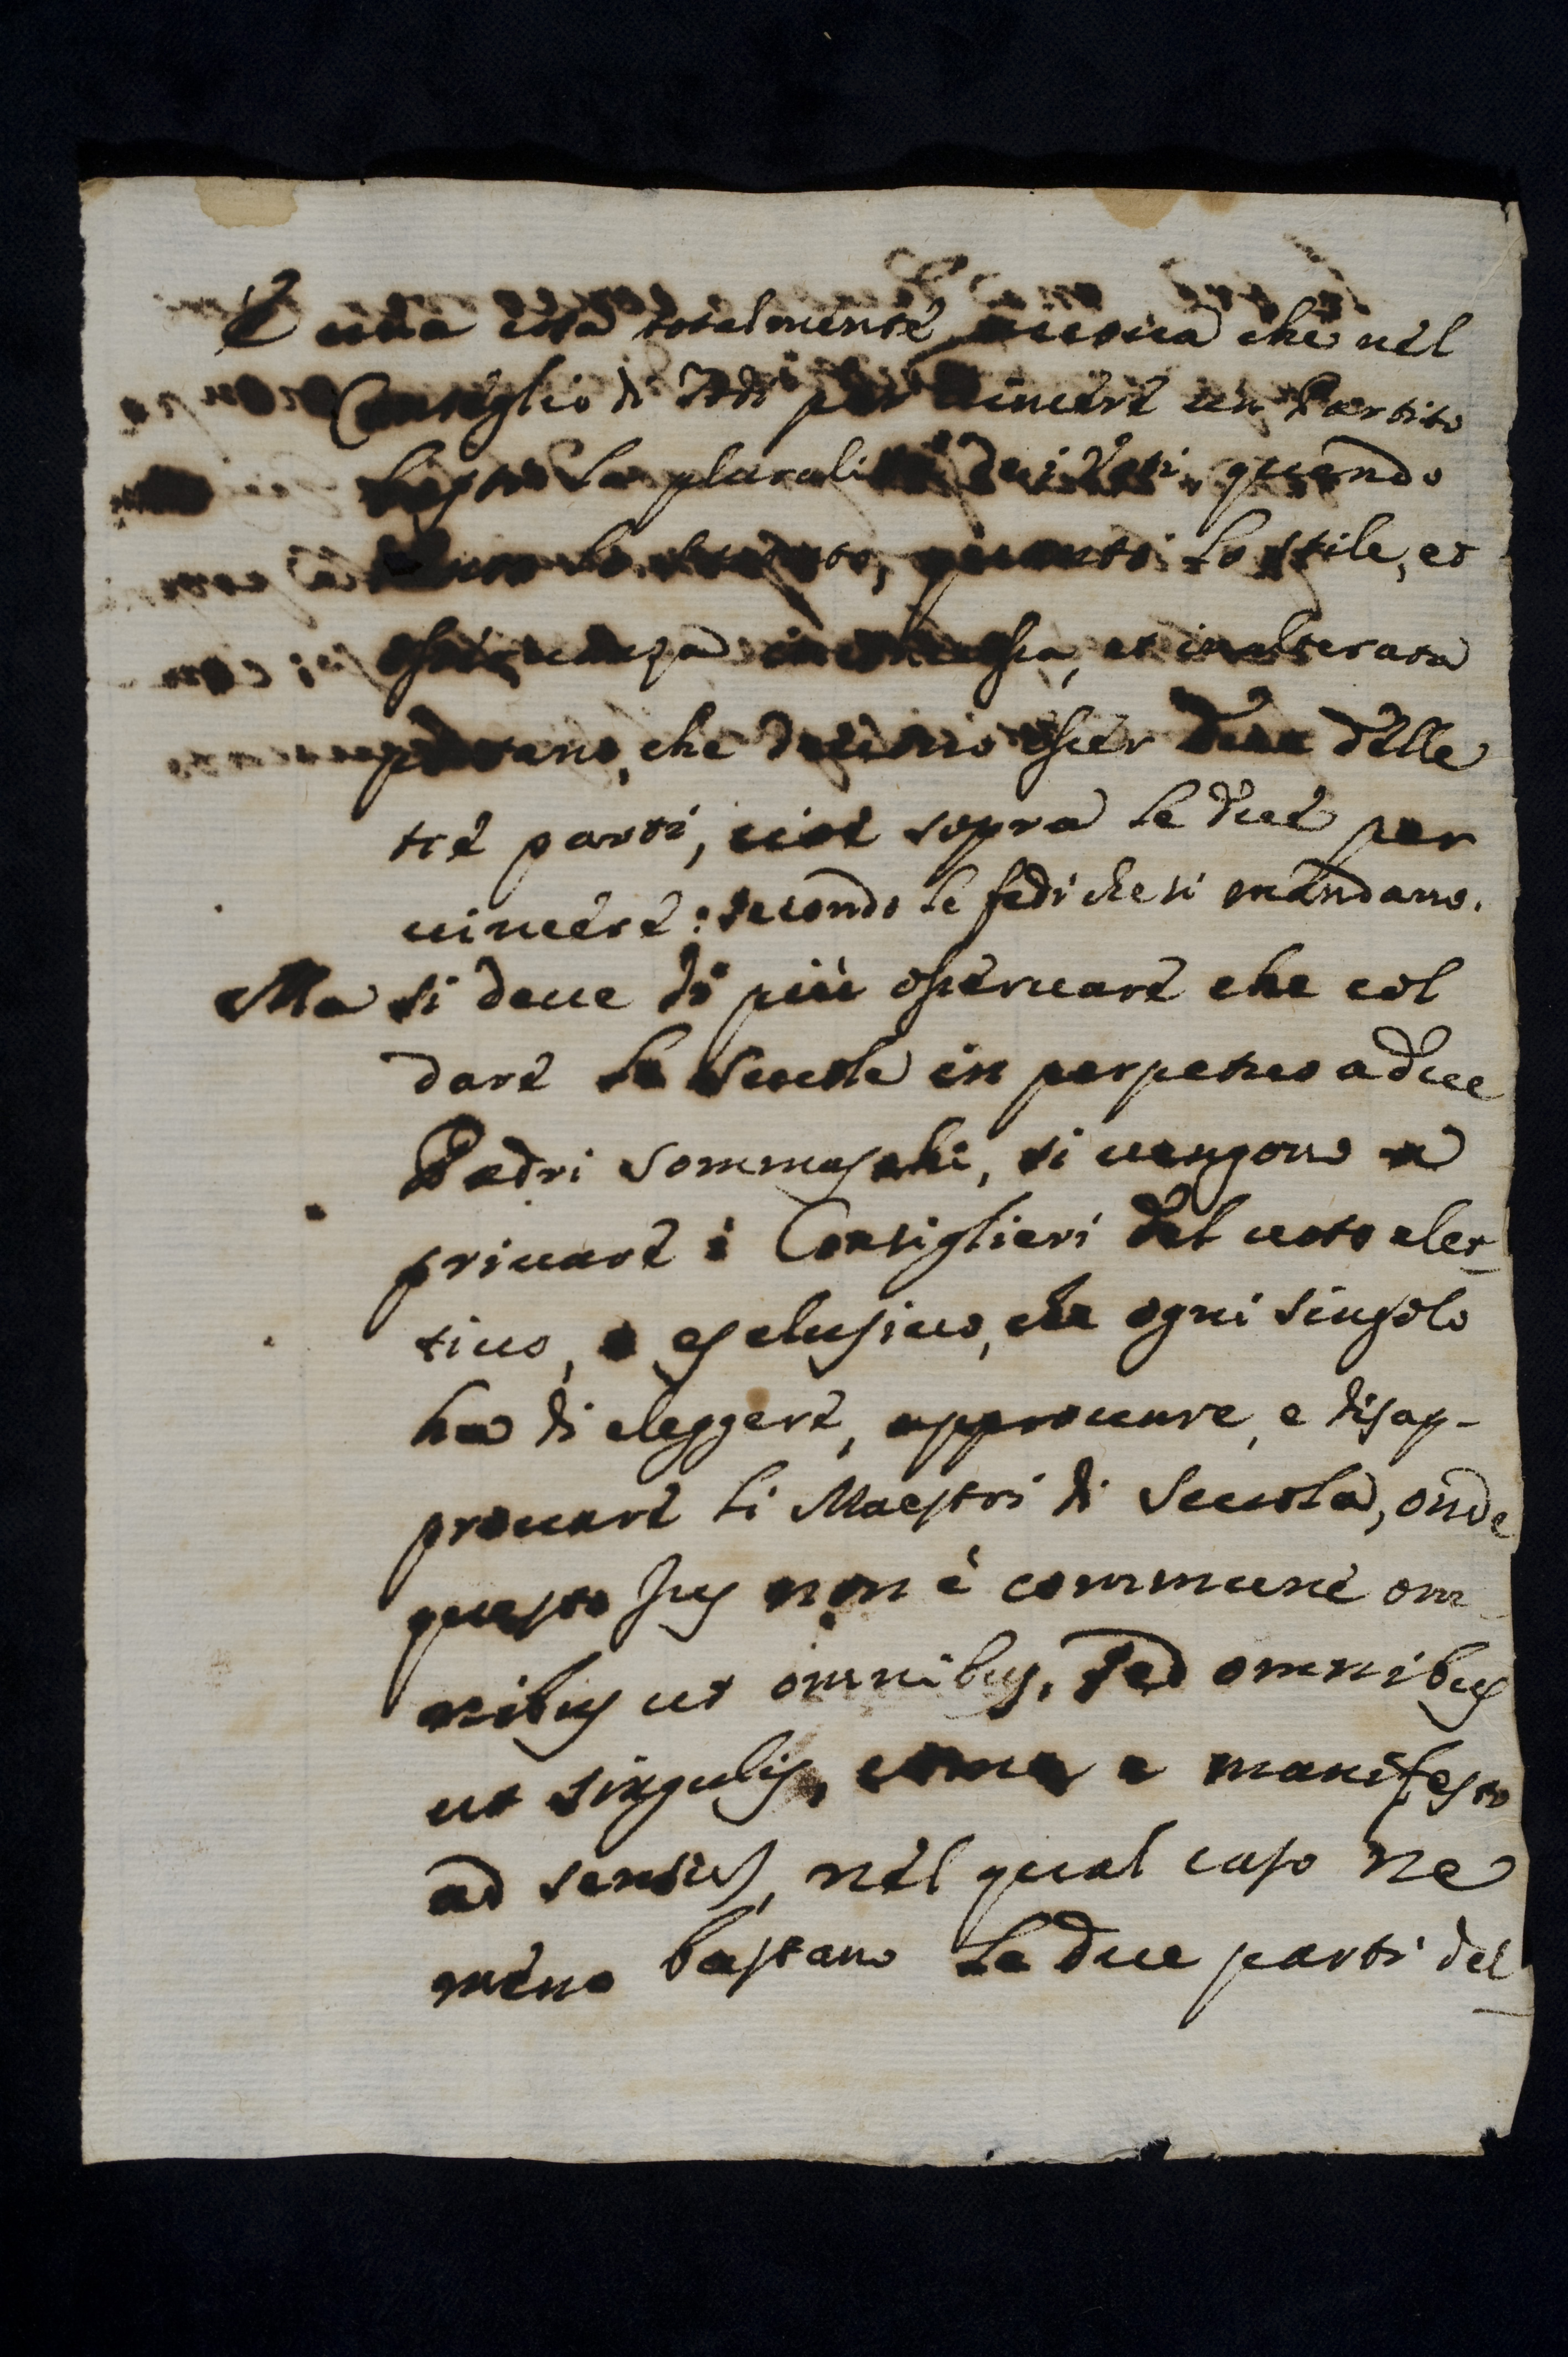 È una cosa totalmente nuova che nel
Consiglio di Todi per vincere un Partito
basti la pluralità dei Voti, quando
non lo statuto, quanto lo stile, et
osseruanza inconcussa, et inalterata
portano, che deuono esser due delle
trè parti, cioè sopra le due per
uincere: secondo le fedi che si mandano.
Ma si deue di più osseruare che col
dare le Scuole in perpetuo a due
Padri Sommaschi, si uengono a
priuare i Consiglieri del uoto elet-
tiuo, e esclusiuo, che ogni singolo
ha di eleggere, approuare, e disap-
prouare li Maestri di Scuola, onde
questo Jus non è commune om-
nibus ut omnibus, sed omnibus
ut singulis, come è manifesto
ad sensus, nel qual caso ne
meno bastano le due parti del-